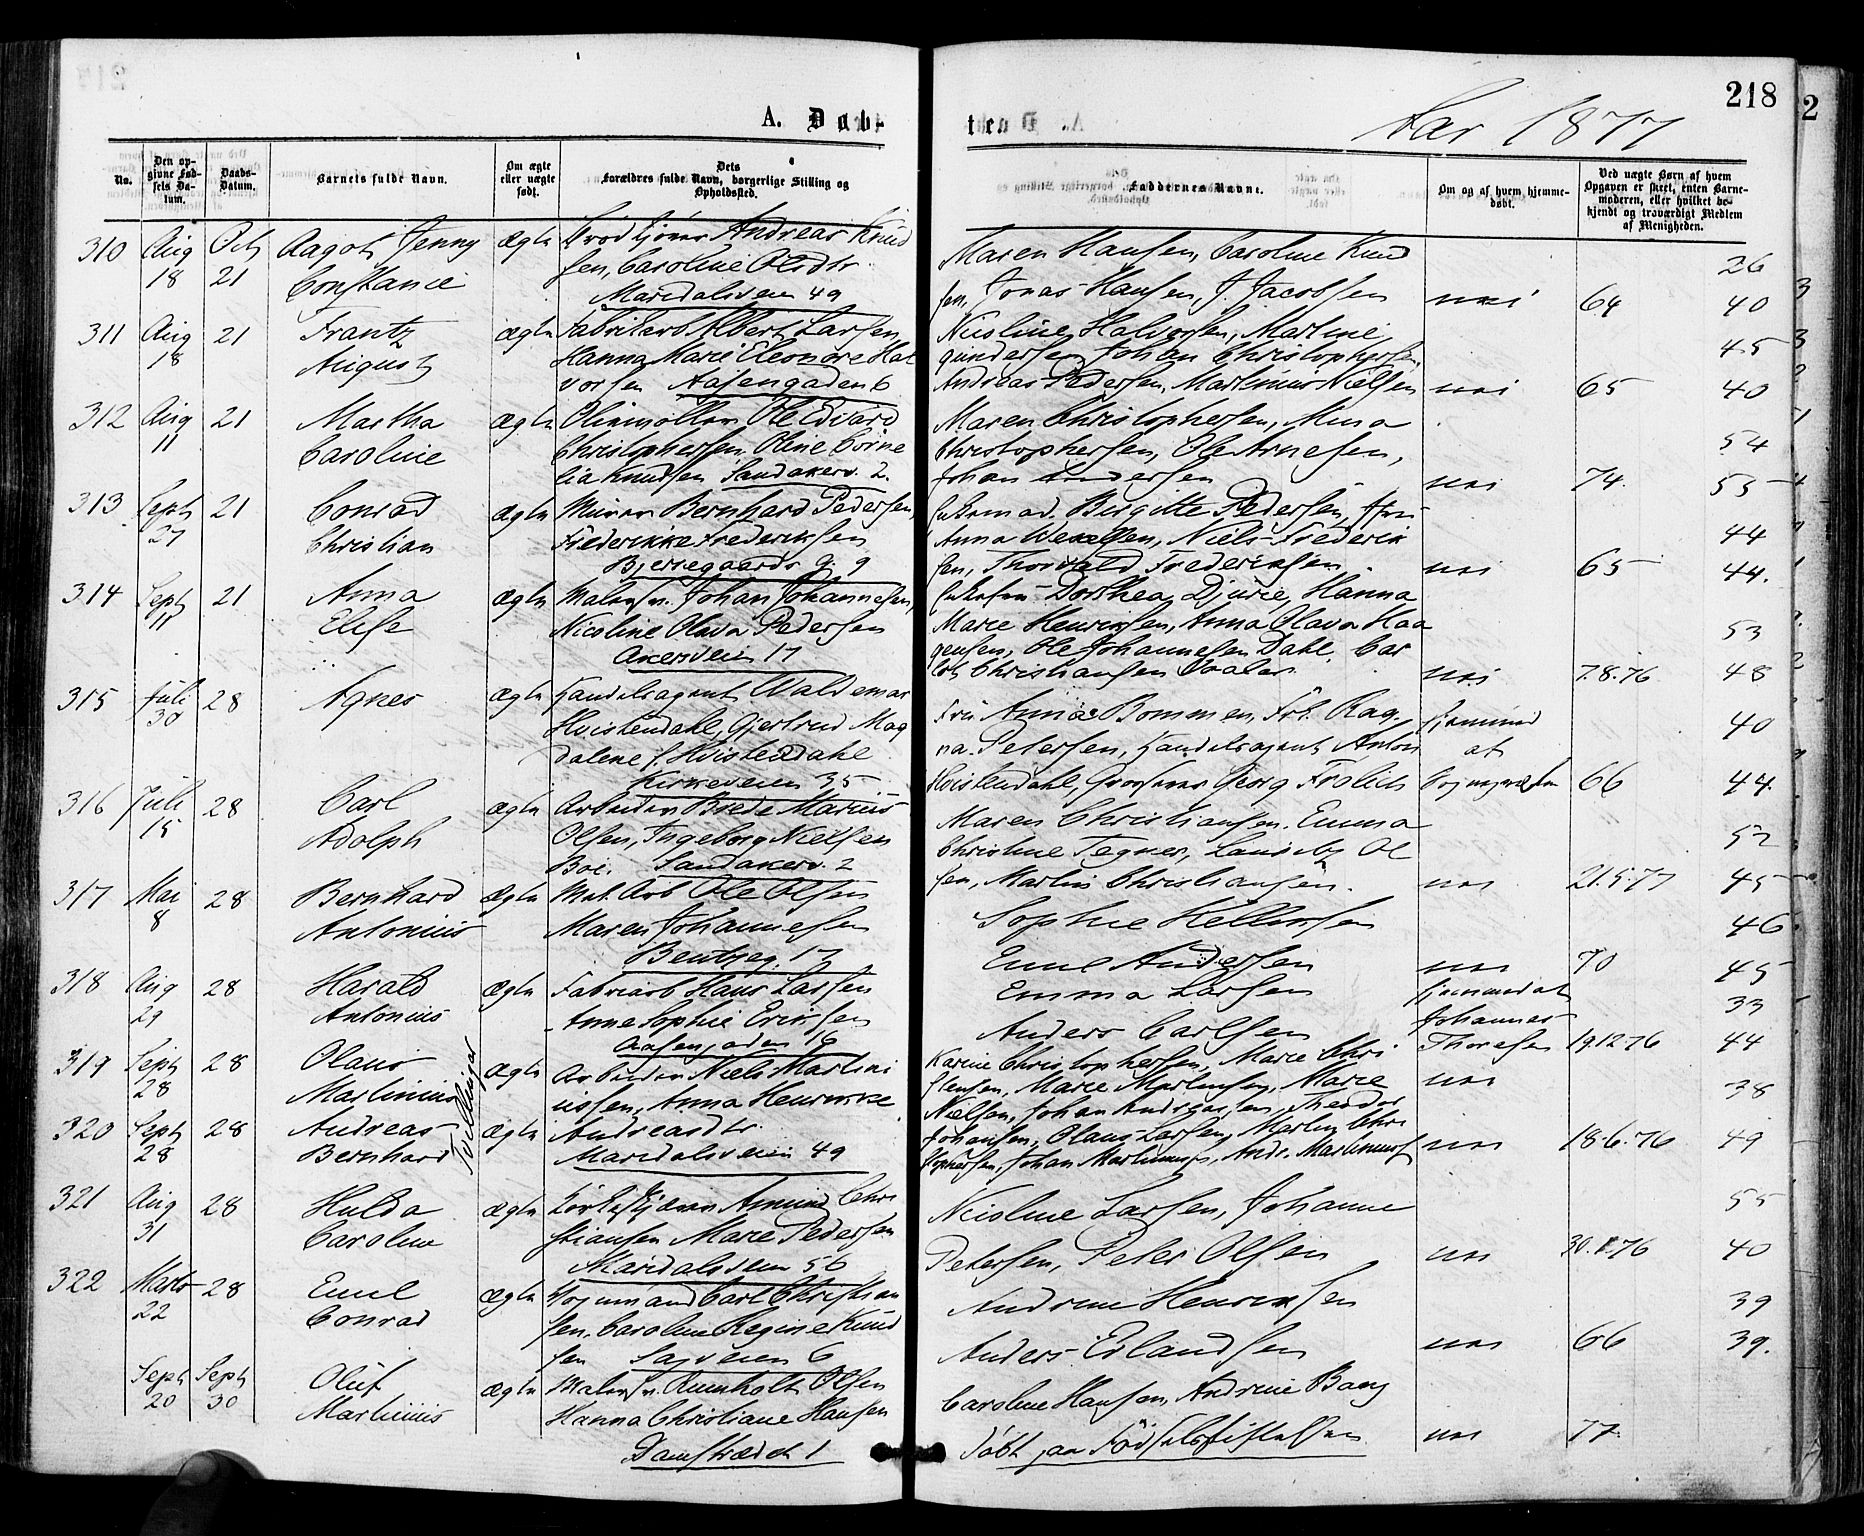 218
A. Døb-
ten
Aar 1877
No.
Den op-
givne Fød-
sels Da-
tum.
Daabs-
Datum.
Barnets fulde Navn.
Om ægte
eller uægte
født.
Dets
Forældres fulde Navn, borgerlige Stilling og
Opholdssted.
Faddernes Navne.
Om og af hvem hjemme-
døbt.
Ved uægte Børn af hvem
Opgaven er skeet, enten Barne-
moderen, eller hvilket be-
kjendt og troværdigt Medlem
af Menigheden.
310 Aug 18 Octb 21 Aagot Jenny
Constance
ægte
Brødkjører Andreas Knud
sen, Caroline Olsdtr.
Maridalsveien 49
Maren Hansen, Caroline Knud
sen, Jonas Hansen, J. Jacobsen
nei 64
26
40
311 Aug 18 21 Frantz
August
ægte
Fabrikarb Albert Larsen,
Hanna Marie Eleonore Hal
vorsen Aasengaden 6
Nicoline Halvorsen, Martine
Gundersen, Johan Christophersen,
Andreas Pedersen, Martinus Nielsen
nei 65
45
40
312 Aug 11 21 Martha
Caroline
ægte
Oliemøller Ole Edvard
Christophersen, Oline Corne
lia Knudsen Sandakerv. 2.
Maren Christophersen, Mina
Christophersen, Ole Arnesen,
Johan Andersen
nei 74.
54
55
313 Sept 27 21 Conrad
Christian
ægte
Murer Bernhard Pedersen,
Frederikke Frederiksen
Bjerregaards g. 9
Birgitte Pedersen,
Anna Wexelsen, Niels Frederik
sen, Thorvald Frederiksen.
nei 65
44
44.
314 Sept 11 21 Anna
Elise
ægte
Malersv. Johan Johannesen,
Nicoline Olava Pedersen
Akersveien 17
Dorthea Djurie, Hanna
Marie Henriksen, Anna Olava Haa
gensen, Ole Johannesen Dahl, Car
Christiansen
nei 7.8.76
53
48
315 Juli 30 28 Agnes
ægte
Handelsagent Waldemar
Hvistendahl, Gjertrud Mag
dalene f. Hvistendahl
Kirkeveien 35
Fru Anna Bommen, Frk. Rag
na Petersen, Handelsagent Anton
Hvistendahl, Grosserer Georg Frölich
hjemmed
af
Sognepræsten
66
40
44.
316 Juli 15 28 Carl
Adolph
ægte
Arbeider Brede Marius
Olsen, Ingeborg Nielsen
Boe. Sandakerv. 2
Maren Christiansen, Emma
Christine Tegner, Ol
sen, Martin Christiansen.
nei 21.5.77
52
45
317 Mai 8 28 Bernhard
Antonius
ægte
Mek. Arb Ole Olsen
Maren Johannesen
Bentzeg. 17
Sophie Hellersen
Emil Andersen
nei 70
46
45
318 Aug 29 28 Harald
Antonius
ægte
Fabrikarb Hans Larsen
Anne Sophie Eriksen
Aasengaden 19
Emma Larsen
Anders Carlsen
hjemmed af
Johannes
Thoresen
19.12.76
33
44
319 Sept 28 28 Olaus
Martinius
Tvillinger
ægte
Arbeider Niels Martini
ussen, Anna Henrikke
Karine Christophersen, Marie Chri
stensen, Marie Martinsen, Marie
Nielsen, Johan Andreassen, Theodor
nei
38
320 Sept 28 28 Andreas
Bernhard
ægte
Andreasdtr.
Maridalsveien 49
Johansen, Olaus Larsen, Martin Chri
stophersen, Johan Martinius, Andr. Martiniuss
nei 18.6.76
49
321 Aug 31 28 Hulda
Caroline
ægte
Amund Chri
stiansen Marie Pedersen
Maridalsveien 56
Nicoline Larsen, Johanne
Petersen, Peter Olsen
nei 30.1.76
55
40
322 Marts 22 28 Emil
Conrad
ægte
Vognmand Carl Christian
sen, Caroline Regine Knud
sen Sagveien 6
Andrine Henriksen
Anders Erlandsen
nei 66
39
39.
Sept 20 Sept 30 Oluf
Martinius
ægte
Malersv. Rumholt Olsen
Hanna Christiane Hansen
Damstrædet 1
Caroline Hansen, Andrine Bang
Døbt paa Fødselsstiftelsen
nei 77.